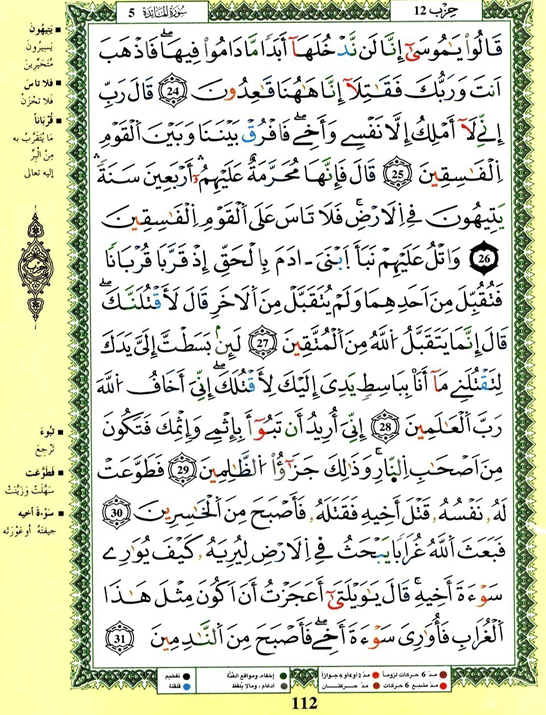 حِزْبْ 12
سُورَةُ الْمَائِدَة 5
قَالُواْ يَٰمُوسَىٰٓ إِنَّا لَن نَّدْخُلَهَآ أَبَدٗا مَّا دَامُواْ فِيهَا فَاذْهَبَ
اَنتَ وَرَبُّكَ فَقَٰتِلَآ إِنَّا هَٰهُنَا قَٰعِدُونَ 24 قَالَ رَبِّ
إِنِّے لَآ أَمْلِكُ إِلَّا نَفْسِے وَأَخِے فَافْرُقْ بَيْنَنَا وَبَيْنَ اَلْقَوْمِ
اِلْفَٰسِقِينَ 25 قَالَ فَإِنَّهَا مُحَرَّمَةٌ عَلَيْهِمُۥٓ أَرْبَعِينَ سَنَةٗ
يَتِيهُونَ فِے اِلَارْضِ فَلَا تَاسَ عَلَى اَلْقَوْمِ اِلْفَٰسِقِينَ
26 وَاتْلُ عَلَيْهِمْ نَبَأَ اَبْنَىَ ـ ادَمَ بِالْحَقِّ إِذْ قَرَّبَا قُرْبَانٗا
فَتُقُبِّلَ مِنَ اَحَدِهِمَا وَلَمْ يُتَقَبَّلْ مِنَ اَلَاخَرِ قَالَ لَأَقْتُلَنَّكَ
قَالَ إِنَّمَا يَتَقَبَّلُ اُللَّهُ مِنَ اَلْمُتَّقِينَ 27 لَئِنۢ بَسَطتَ إِلَيَّ يَدَكَ
لِتَقْتُلَنِے مَآ أَنَا بِبَاسِطٖ يَدِىَ إِلَيْكَ لِأَقْتُلَكَ إِنِّىَ أَخَافُ اُللَّهَ
رَبَّ اَلْعَٰلَمِينَ 28 إِنِّىَ أُرِيدُ أَن تَبُوٓأَ بِإِثْمِے وَإِثْمِكَ فَتَكُونَ
مِنَ اَصْحَٰبِ اِلنّ۪ارِ وَذَٰلِكَ جَزَٰٓؤُاْ اُلظَّٰلِمِينَ 29 فَطَوَّعَتْ
لَهُۥ نَفْسُهُۥ قَتْلَ أَخِيهِ فَقَتَلَهُۥ فَأَصْبَحَ مِنَ اَلْخَٰسِرِينَ 30
فَبَعَثَ اَللَّهُ غُرَابٗا يَبْحَثُ فِے اِلَارْضِ لِيُرِيَهُۥ كَيْفَ يُوَٰرِے
سَوْءَةَ أَخِيهِ قَالَ يَٰوَيْلَتَىٰٓ أَعَجَزْتُ أَنَ اَكُونَ مِثْلَ هَٰذَا
اَلْغُرَابِ فَأُوَٰرِىَ سَوْءَةَ أَخِے فَأَصْبَحَ مِنَ اَلنَّٰدِمِينَ 31
يَتِيهُونَ
يَسِيرُونَ
مُتَحَيِّرِينَ
فَلا تَاسَ
فَلا تَحْزَن
قُرْبَاناً
مَا يُتَقَرَّبُ به
مِنَ الْبِرِّ
إليه تعالى
حِزْب
تَبُوءَ
تَرْجِعَ
فَطَوَّعَت
سَهَّلَتْ وَزَيَّنَتْ
سَوْءَةَ أخيه
جِيفَتَهُ أوْ عَوْرَتَه
مدّ 6 حركات لزوماً
مدّ 2 أو 4 أو 6 جوازاً
مدّ مشبع 6 حركات
مدّ حركتان
إخفاء، ومواقع الغُنَّة
ادغام، وما لا يُلفظ
تفخيم
قلقلة
112